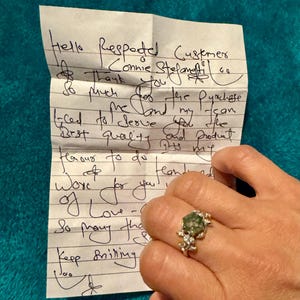 Hello Respected Customer
Connie Stefan
Thank you
So much for the Purchase
me and my team
Glad to serve you the
Best quality and product
Its my
Honour to do
work for you
of Love -
So many tha
Keep smiling